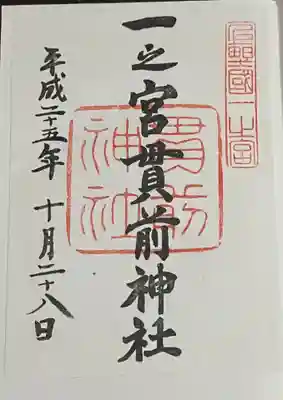 上野國一之宮
一之宮貫前神社
貫前神社
平成二十五年十月二十八日